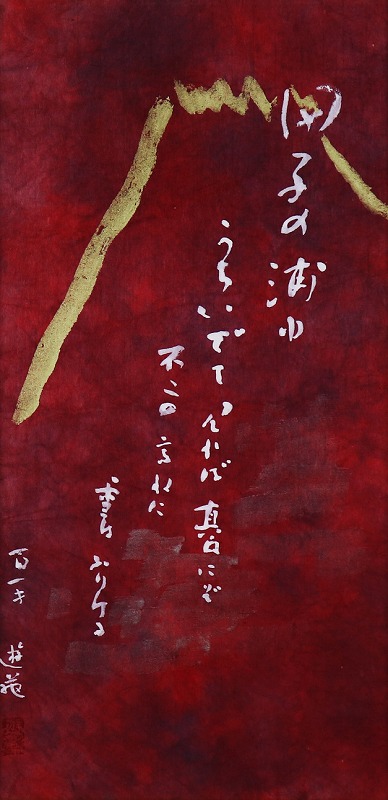 田子の浦ゆ
うちいでてみれば真白にぞ
不二の高ねに
雪はふりける
百一才